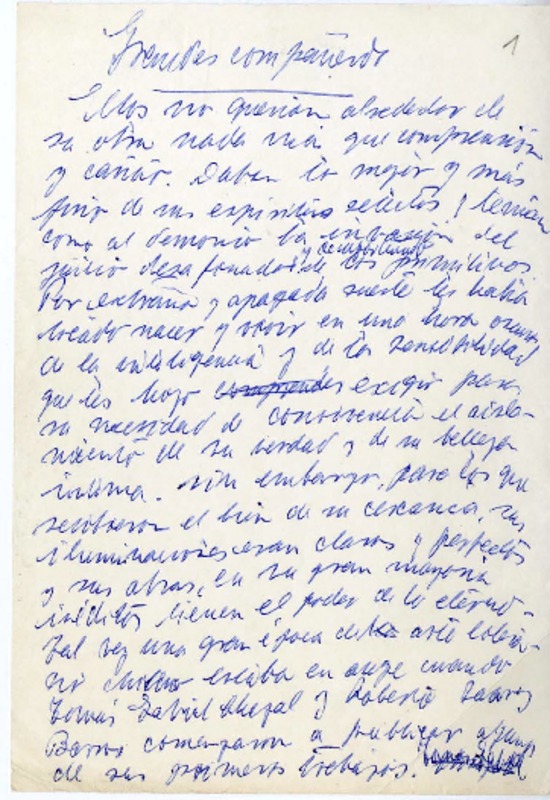 1
Grandes compañeros
Ellos no querían alrededor de
su obra nada más que comprensión
y cariño. Daban lo mejor y más
fino de sus espíritus selectos y temían
como al demonio la invasión del
juicio desaforado y
de los primitivos.
Por extraña y apagada suerte les había
tocado nacer y vivir en una hora oscura
de la inteligencia y de la sensibilidad
que les hizo exigir para
su necesidad de convivencia el aisla-
miento de su verdad y de su belleza
íntima. Sin embargo, para los que
recibieron el bien de su cercanía, sus
iluminaciones eran claras y perfectas
y sus obras, en su gran mayoría
inéditas tienen el poder de lo eterno.
Tal vez una gran época del arte litera-
rio chileno estaba en auge cuando
Tomás Gabriel Chazal y Roberto Suárez
Barros comenzaron a publicar algunos
de sus primeros trabajos.